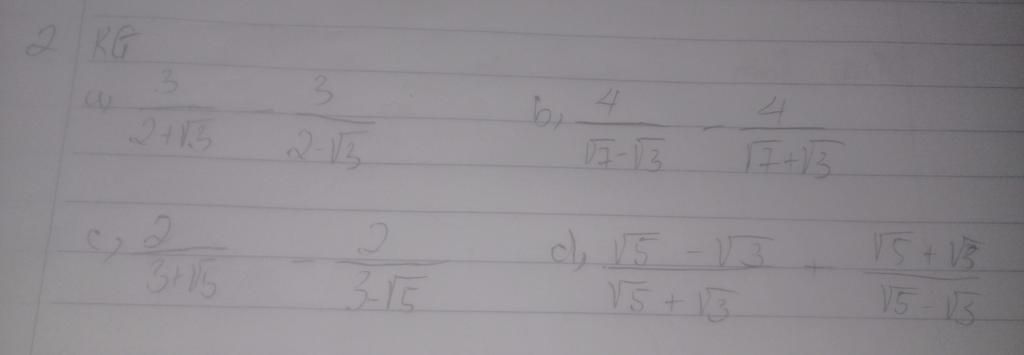 2 RG
a, 3/(2+√3) - 3/(2-√3) b, 4/(√7-√3) - 4/(√7+√3)
c, 2/(3+√5) - 2/(3-√5) d, (√5 - √3)/(√5 + √3) + (√5 + √3)/(√5 - √3)